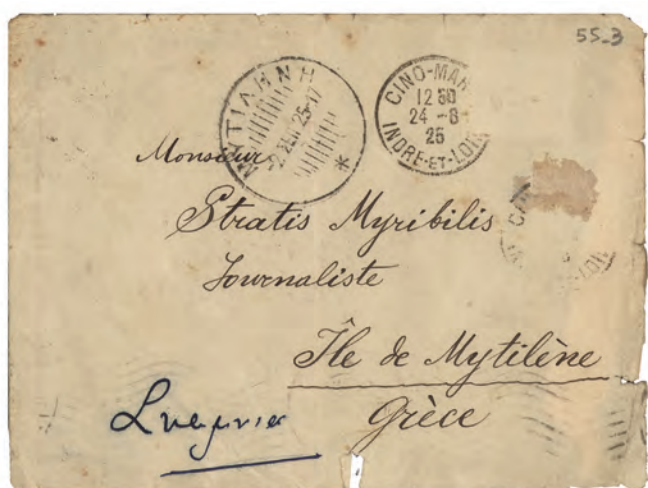 55-3
ΜΥΤΙΛΗΝΗ
CINQ-MAR
12 30
24 -8
25
INDRE-ET-LOIR
Monsieur
Stratis Myribilis
Journaliste
Île de Mytilène
Grèce